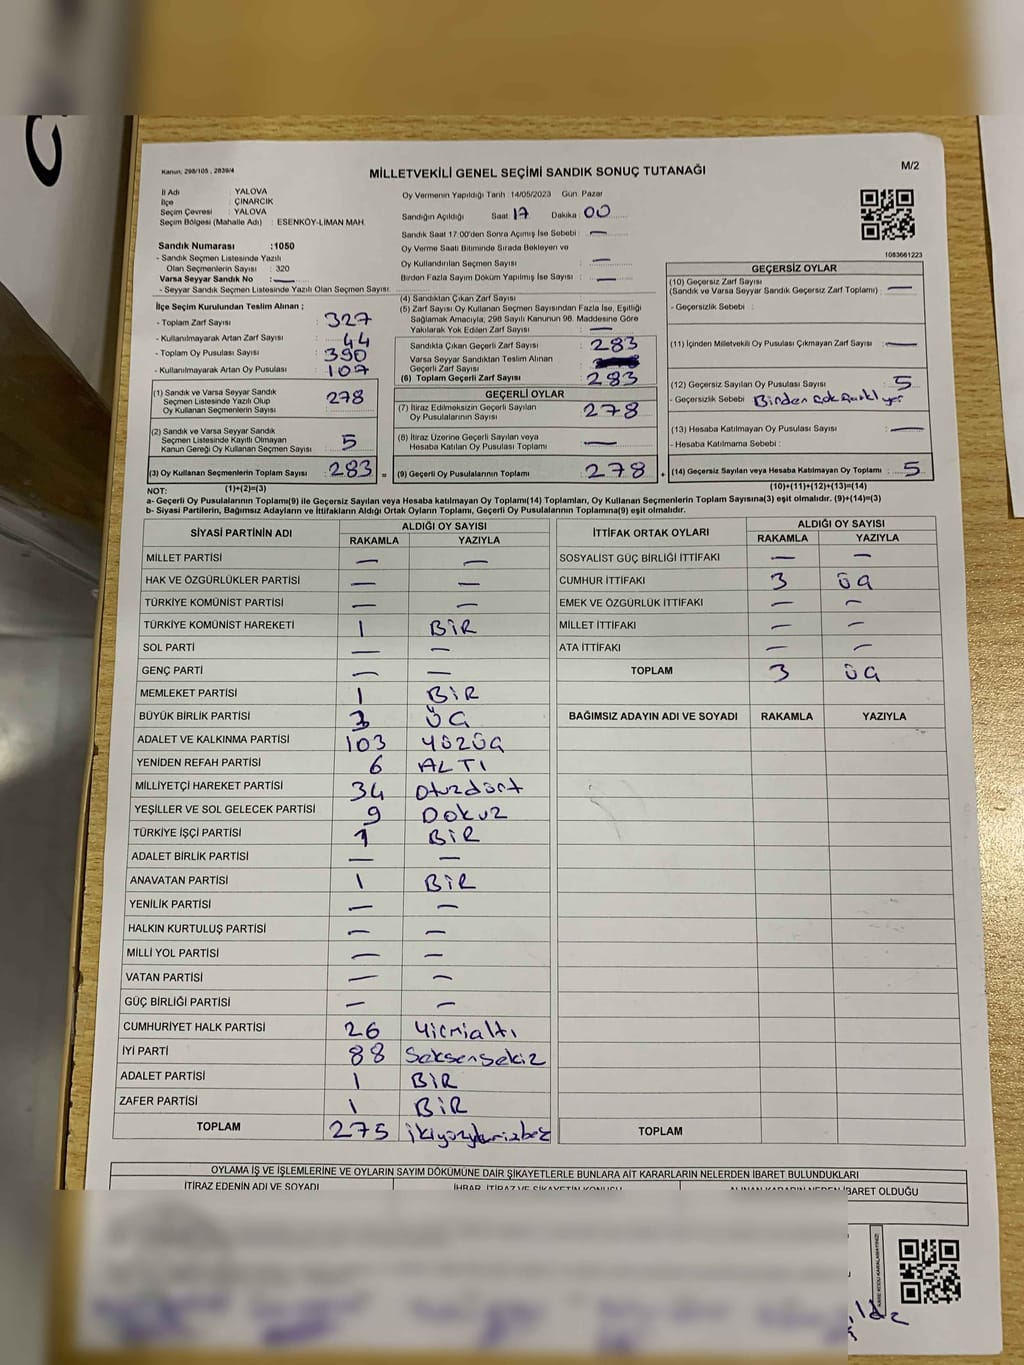 Kanun: 298/105 , 2839/4
MİLLETVEKİLİ GENEL SEÇİMİ SANDIK SONUÇ TUTANAĞI
M/2
İl Adı : YALOVA
İlçe : ÇINARCIK
Seçim Çevresi : YALOVA
Seçim Bölgesi (Mahalle Adı) : ESENKÖY-LİMAN MAH.
Sandık Numarası :1050
- Sandık Seçmen Listesinde Yazılı
Olan Seçmenlerin Sayısı : 320
Varsa Seyyar Sandık No : —
- Seyyar Sandık Seçmen Listesinde Yazılı Olan Seçmen Sayısı:
Oy Vermenin Yapıldığı Tarih :14/05/2023 Gün: Pazar
Sandığın Açıldığı Saat 17 Dakika 00
Sandık Saat 17:00'den Sonra Açımış İse Sebebi : —
Oy Verme Saati Bitiminde Sırada Bekleyen ve
Oy Kullandırılan Seçmen Sayısı : —
Birden Fazla Sayım Döküm Yapılmış İse Sayısı : —
1083661223
İlçe Seçim Kurulundan Teslim Alınan ;
- Toplam Zarf Sayısı : 327
- Kullanılmayarak Artan Zarf Sayısı : 44
- Toplam Oy Pusulası Sayısı : 390
- Kullanılmayarak Artan Oy Pusulası : 107
(1) Sandık ve Varsa Seyyar Sandık
Seçmen Listesinde Yazılı Olup
Oy Kullanan Seçmenlerin Sayısı : 278
(2) Sandık ve Varsa Seyyar Sandık
Seçmen Listesinde Kayıtlı Olmayan
Kanun Gereği Oy Kullanan Seçmen Sayısı : 5
(3) Oy Kullanan Seçmenlerin Toplam Sayısı : 283 =
(1)+(2)=(3)
(4) Sandıktan Çıkan Zarf Sayısı :
(5) Zarf Sayısı Oy Kullanan Seçmen Sayısından Fazla İse, Eşitliği
Sağlamak Amacıyla, 298 Sayılı Kanunun 98. Maddesine Göre
Yakılarak Yok Edilen Zarf Sayısı : —
Sandıkta Çıkan Geçerli Zarf Sayısı : 283
Varsa Seyyar Sandıktan Teslim Alınan
Geçerli Zarf Sayısı :
(6) Toplam Geçerli Zarf Sayısı : 283
GEÇERLİ OYLAR
(7) İtiraz Edilmeksizin Geçerli Sayılan
Oy Pusulalarının Sayısı : 278
(8) İtiraz Üzerine Geçerli Sayılan veya
Hesaba Katılan Oy Pusulası Toplamı : —
(9) Geçerli Oy Pusulalarının Toplamı : 278 +
GEÇERSİZ OYLAR
(10) Geçersiz Zarf Sayısı
(Sandık ve Varsa Seyyar Sandık Geçersiz Zarf Toplamı) : —
- Geçersizlik Sebebi :
(11) İçinden Milletvekili Oy Pusulası Çıkmayan Zarf Sayısı : —
(12) Geçersiz Sayılan Oy Pusulası Sayısı : 5
- Geçersizlik Sebebi : Birden çok farklı yer
(13) Hesaba Katılmayan Oy Pusulası Sayısı : —
- Hesaba Katılmama Sebebi :
(14) Geçersiz Sayılan veya Hesaba Katılmayan Oy Toplamı : 5
(10)+(11)+(12)+(13)=(14)
NOT:
a- Geçerli Oy Pusulalarının Toplamı(9) ile Geçersiz Sayılan veya Hesaba katılmayan Oy Toplamı(14) Toplamları, Oy Kullanan Seçmenlerin Toplam Sayısına(3) eşit olmalıdır. (9)+(14)=(3)
b- Siyasi Partilerin, Bağımsız Adayların ve İttifakların Aldığı Ortak Oyların Toplamı, Geçerli Oy Pusulalarının Toplamına(9) eşit olmalıdır.
SİYASİ PARTİNİN ADI ALDIĞI OY SAYISI
RAKAMLA YAZIYLA
MİLLET PARTİSİ — —
HAK VE ÖZGÜRLÜKLER PARTİSİ — —
TÜRKİYE KOMÜNİST PARTİSİ — —
TÜRKİYE KOMÜNİST HAREKETİ 1 BİR
SOL PARTİ — —
GENÇ PARTİ — —
MEMLEKET PARTİSİ 1 BİR
BÜYÜK BİRLİK PARTİSİ 3 ÜÇ
ADALET VE KALKINMA PARTİSİ 103 YÜZÜÇ
YENİDEN REFAH PARTİSİ 6 ALTI
MİLLİYETÇİ HAREKET PARTİSİ 34 Otuzdört
YEŞİLLER VE SOL GELECEK PARTİSİ 9 Dokuz
TÜRKİYE İŞÇİ PARTİSİ 1 BİR
ADALET BİRLİK PARTİSİ — —
ANAVATAN PARTİSİ 1 BİR
YENİLİK PARTİSİ — —
HALKIN KURTULUŞ PARTİSİ — —
MİLLİ YOL PARTİSİ — —
VATAN PARTİSİ — —
GÜÇ BİRLİĞİ PARTİSİ — —
CUMHURİYET HALK PARTİSİ 26 Yirmialtı
İYİ PARTİ 88 Seksensekiz
ADALET PARTİSİ 1 BİR
ZAFER PARTİSİ 1 BİR
TOPLAM 275
İTTİFAK ORTAK OYLARI ALDIĞI OY SAYISI
RAKAMLA YAZIYLA
SOSYALİST GÜÇ BİRLİĞİ İTTİFAKI — —
CUMHUR İTTİFAKI 3 ÜÇ
EMEK VE ÖZGÜRLÜK İTTİFAKI — —
MİLLET İTTİFAKI — —
ATA İTTİFAKI — —
TOPLAM 3 ÜÇ
BAĞIMSIZ ADAYIN ADI VE SOYADI RAKAMLA YAZIYLA
TOPLAM
OYLAMA İŞ VE İŞLEMLERİNE VE OYLARIN SAYIM DÖKÜMÜNE DAİR ŞİKAYETLERLE BUNLARA AİT KARARLARIN NELERDEN İBARET BULUNDUKLARI
İTİRAZ EDENİN ADI VE SOYADI
İBARET OLDUĞU